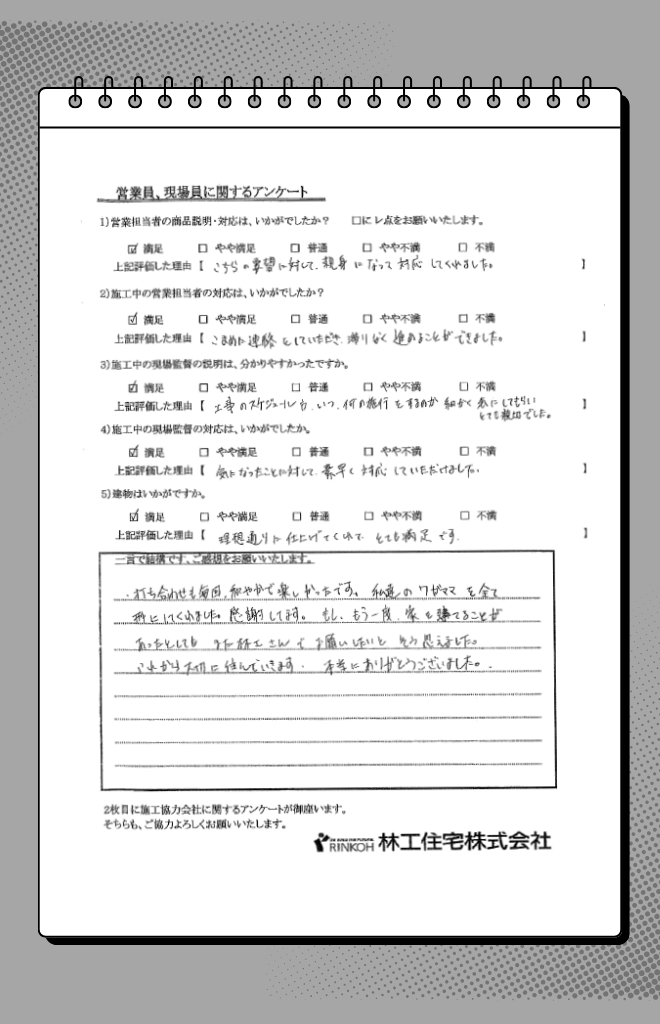 営業員、現場員に関するアンケート
1)営業担当者の商品説明・対応は、いかがでしたか？ □にレ点をお願いいたします。
☑ 満足 □ やや満足 □ 普通 □ やや不満 □ 不満
上記評価した理由【 こちらの要望に対して、親身になって対応してくれました。 】
2)施工中の営業担当者の対応は、いかがでしたか？
☑ 満足 □ やや満足 □ 普通 □ やや不満 □ 不満
上記評価した理由【 こまめに連絡をしていただき、滞りなく進めることができました。 】
3)施工中の現場監督の説明は、分かりやすかったですか。
☑ 満足 □ やや満足 □ 普通 □ やや不満 □ 不満
上記評価した理由【 工事のスケジュールや、いつ、何の施行をするのか 細かく 表にしてもらい 】
とても親切でした。
4)施工中の現場監督の対応は、いかがでしたか。
☑ 満足 □ やや満足 □ 普通 □ やや不満 □ 不満
上記評価した理由【 気になったことに対して、素早く対応していただけました。 】
5)建物はいかがですか。
☑ 満足 □ やや満足 □ 普通 □ やや不満 □ 不満
上記評価した理由【 理想通りに仕上げてくれて、とても満足です。 】
一言で結構です、ご感想をお願いいたします。
・打ち合わせも毎回、和やかで楽しかったです。私達のワガママを全て
形にしてくれました。感謝してます。もし、もう一度、家を建てることが
あったとしても また林工さんでお願いしたいと そう思えました。
これから大切に住んでいきます。本当にありがとうございました。
2枚目に施工協力会社に関するアンケートが御座います。
そちらも、ご協力よろしくお願いいたします。
RINKOH 林工住宅株式会社